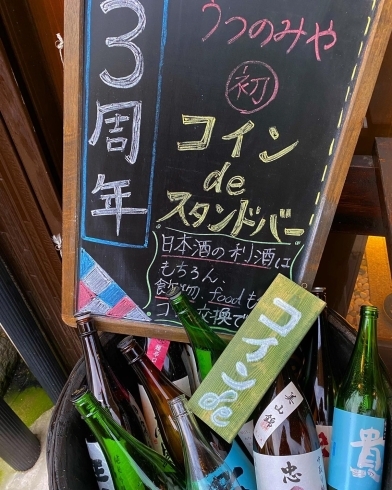 3周年
うつのみや
初
コイン
de
スタンドバー
日本酒の利酒は
もちろん、
食べ物、foodも
コイン交換で
コインde
美山錦
忠
貴